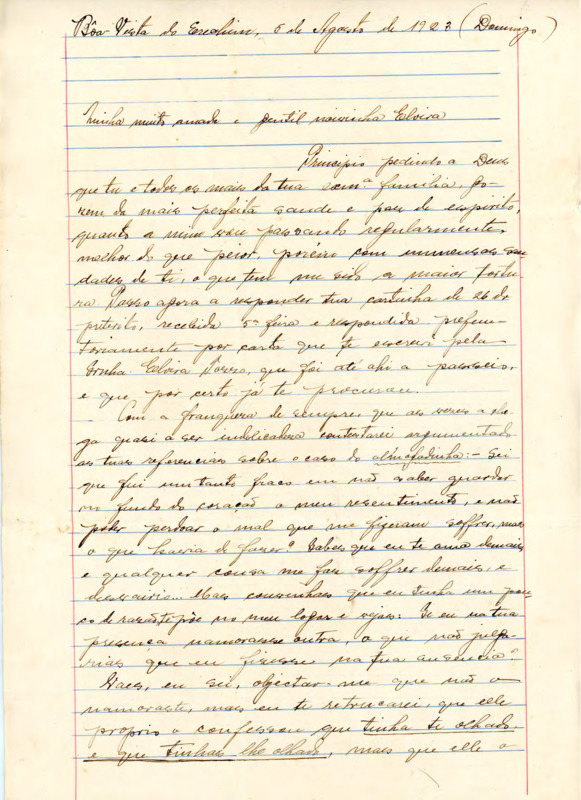 Bôa Vista do Erechim, 5 de Agosto de 1923 (Domingo)
Minha muito amada e gentil noivinha Elvira
Principio pedindo a Deus
que tu e todos os mais da tua Exmª. familia, go-
sem da mais perfeita saude e paz de espirito,
quanto a mim vou passando regularmente,
melhor do que peior, porém com immensas sau
dades de ti, o que tem me sido a maior tortu-
ra. Passo agora a responder tua cartinha de 26 do
preterito, recebida 5ª feira e respondida
por carta que te escrevi pela
Elvira que foi até ahi a passeio,
e que por certo já te procurou.
Com a franqueza de sempre, que as veses a che
ga quasi a ser indelicadeza contestarei argumentado
as tuas referencias sobre o caso do almofadinha:- Sei
que fui um tanto fraco em não saber guardar
no fundo do coração o meu resentimento, e não
poder perdoar o mal que me fizeram soffrer, mas
o que havia de fazer? Sabes que eu te amo demais
e qualquer cousa me faz soffrer demais, e
desvairio... Mas convenhas que eu tinha um pou
co de razão te põe no meu logar e vejas: Se eu na tua
presença namorasse outra, o que não julga-
rias que eu fizesse na tua ausencia?
Mas, eu sei, objectar-me que não o
namoraste, mas eu te retrucarei, que elle
proprio o confessou que tinha te olhado,
e que tinhas lhe olhado, mas que elle o